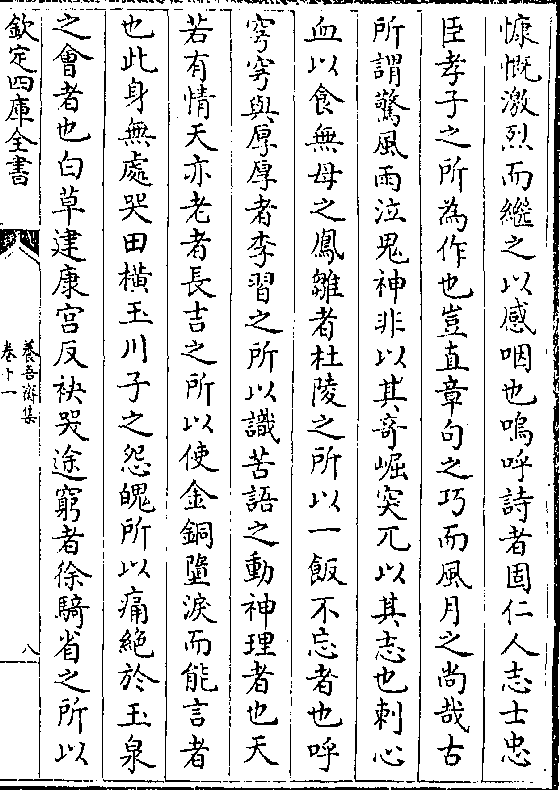 慷慨激烈而繼之以感咽也嗚呼詩者固仁人志士忠
臣孝子之所為作也豈直章句之巧而風月之尚哉古
所謂驚風雨泣鬼神非以其奇崛突兀以其志也刺心
血以食無母之鳳雛者杜陵之所以一飯不忘者也呼
穹穹與厚厚者李習之所以識苦語之動神理者也天
若有情天亦老者長吉之所以使金銅墮淚而能言者
也此身無處哭田橫玉川子之怨魄所以痛絕於玉泉
之會者也白草建康宮反袂哭途窮者徐騎省之所以
欽定四庫全書
養吾齋集
卷十一
八